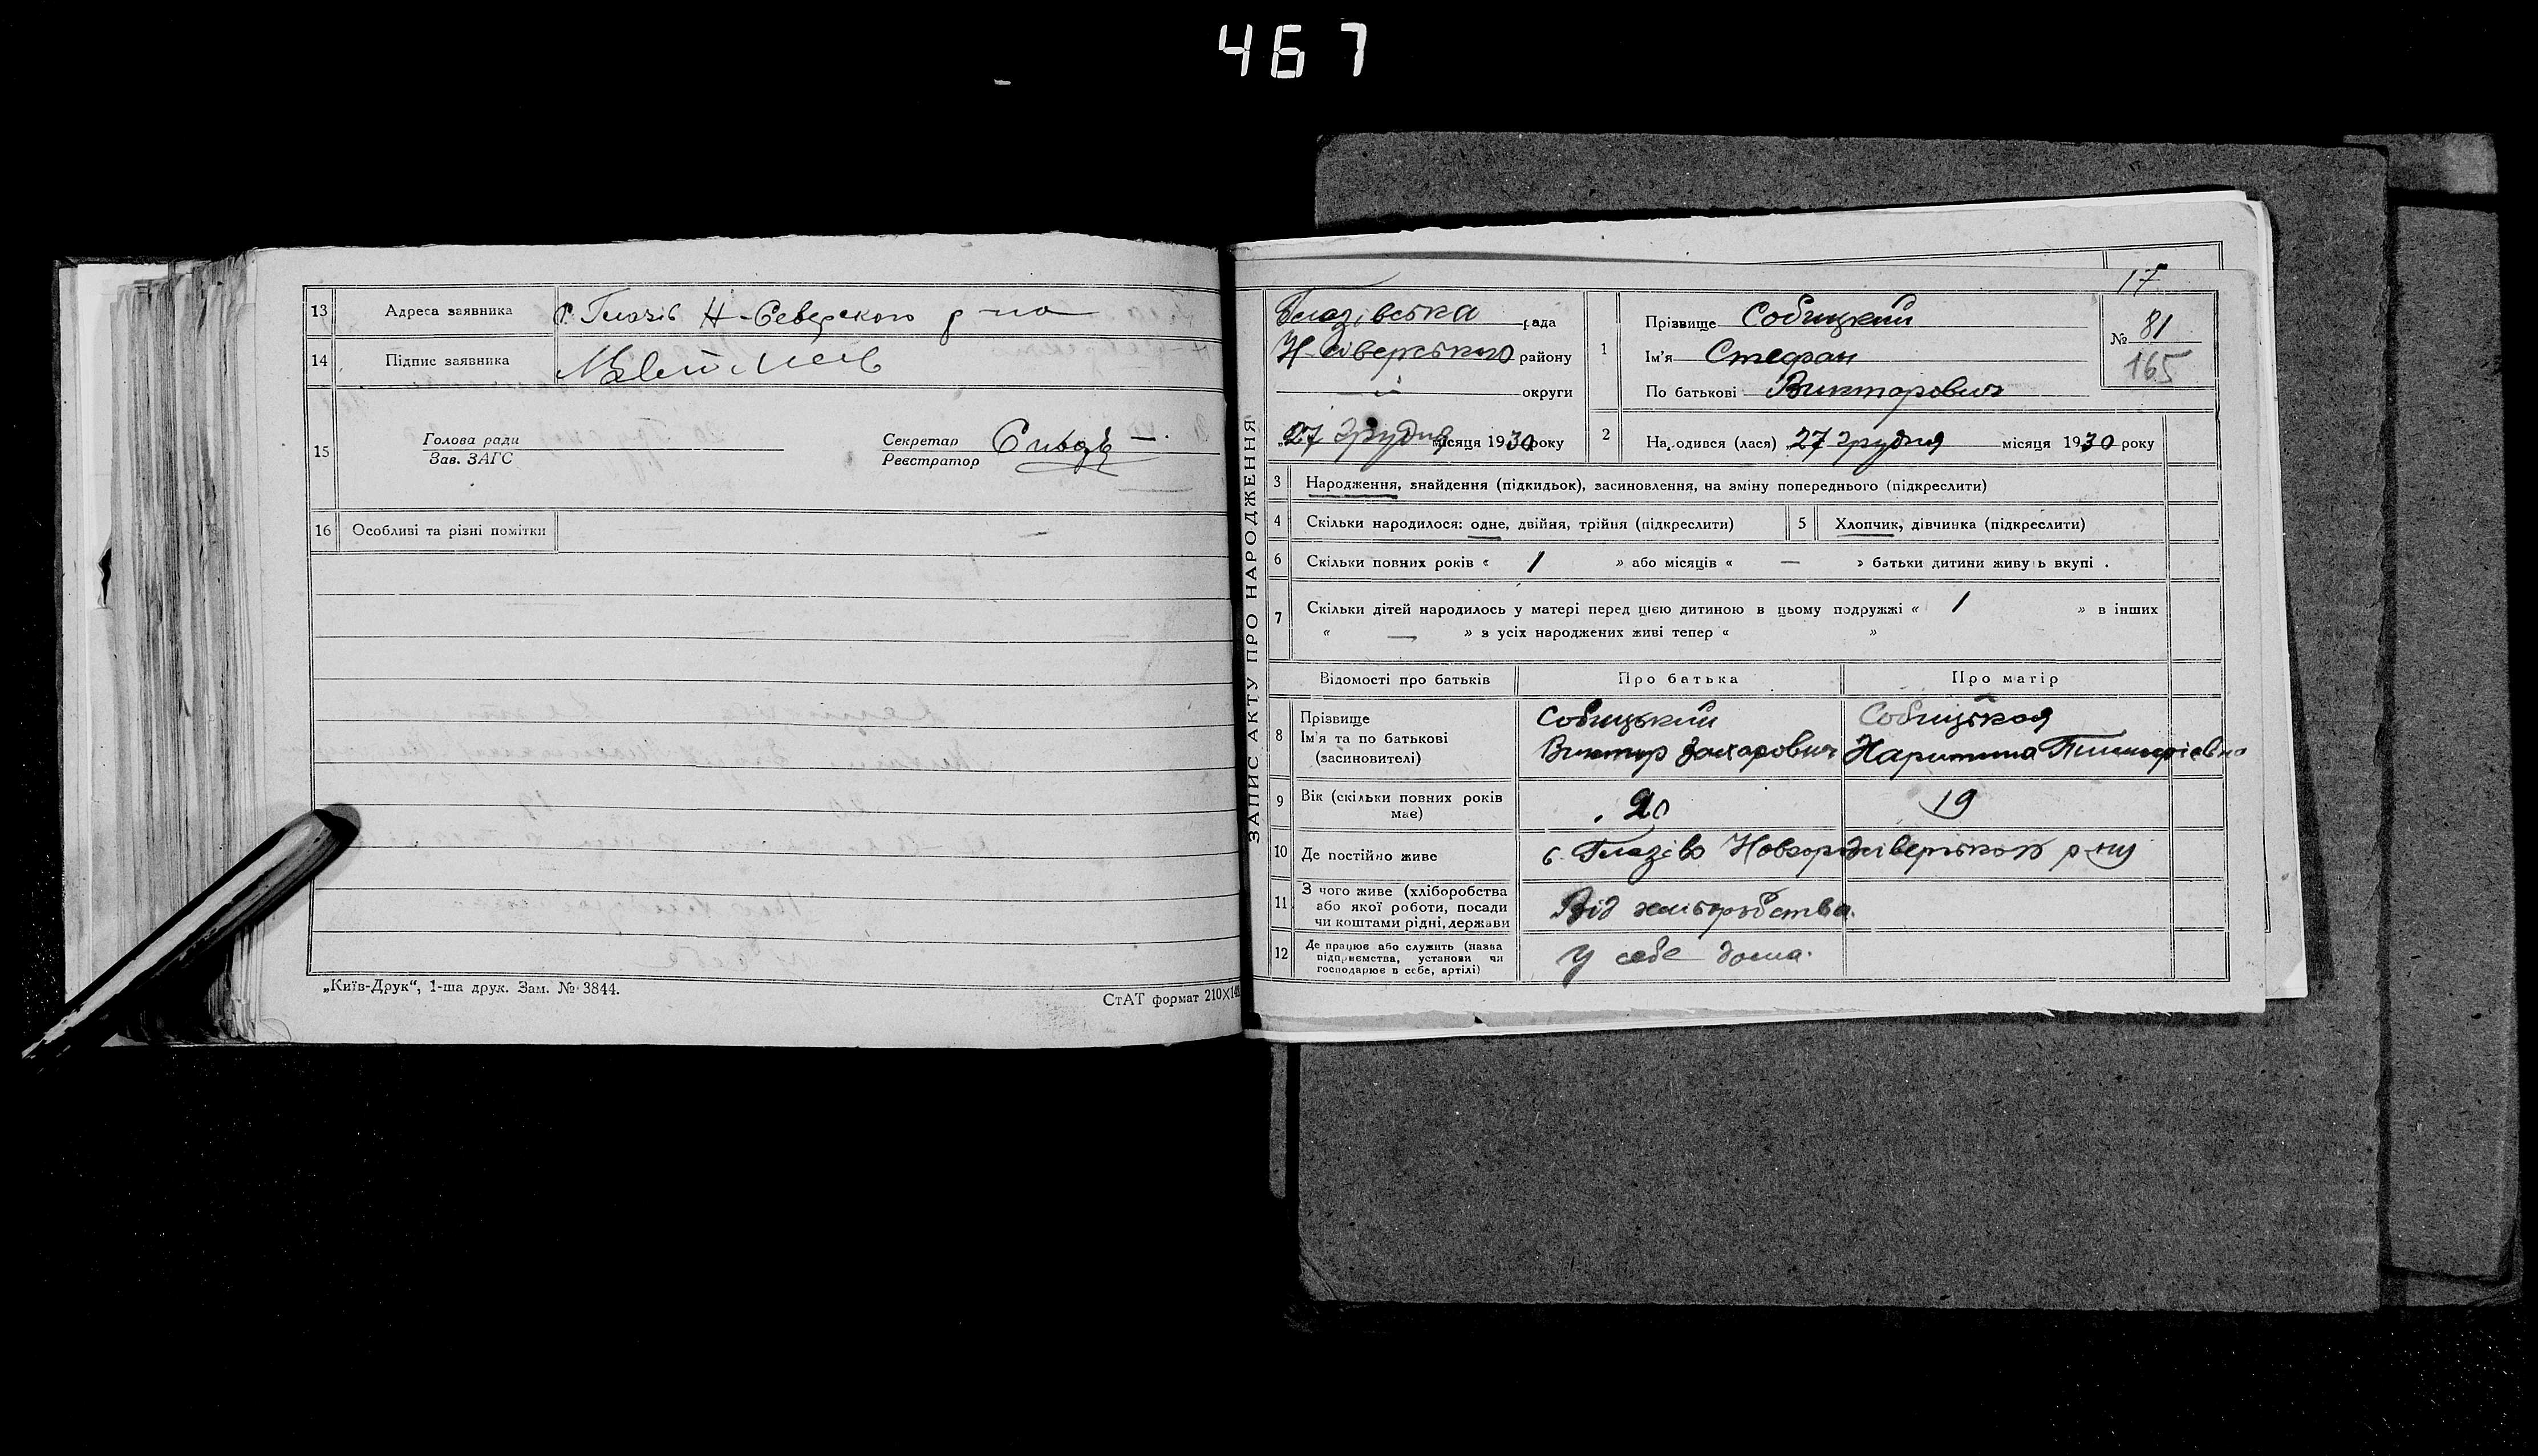 467
13 Адреса заявника с. Глазів Н-Северского р-на
14 Підпис заявника
15 Голова ради
Зав. ЗАГС
Секретар
Реєстратор
16 Особливі та різні помітки
„Київ-Друк“, 1-ша друк. Зам. № 3844.
СтАТ формат 210×148
ЗАПИС АКТУ ПРО НАРОДЖЕННЯ
17
Глазівська рада
Н-Сіверського району
округи
„27 грудня місяця 1930 року
1 Прізвище Собицкий
Ім'я Стефан
По батькові Викторович
№ 81
165
2 Народився (лася) 27 грудня місяця 1930 року
3 Народження, знайдення (підкидьок), засиновлення, на зміну попереднього (підкреслити)
4 Скільки народилося: одне, двійня, трійня (підкреслити) 5 Хлопчик, дівчинка (підкреслити)
6 Скільки повних років « 1 » або місяців « — » батьки дитини живуть вкупі.
7 Скільки дітей народилось у матері перед цією дитиною в цьому подружжі « 1 » в інших
« — » з усіх народжених живі тепер « »
Відомості про батьків Про батька Про матір
8 Прізвище
Ім'я та по батькові
(засиновителі)
Собицький
Виктор Захарович
Собицькая
9 Вік (скільки повних років має) 20 19
10 Де постійно живе с. Глазіво Новгородсіверського р-ну
11 З чого живе (хліборобства
або якої роботи, посади
чи коштами рідні, держави
Від хліборобства.
12 Де працює або служить (назва
підприємства, установи чи
господарює в себе, артілі)
У себе дома.